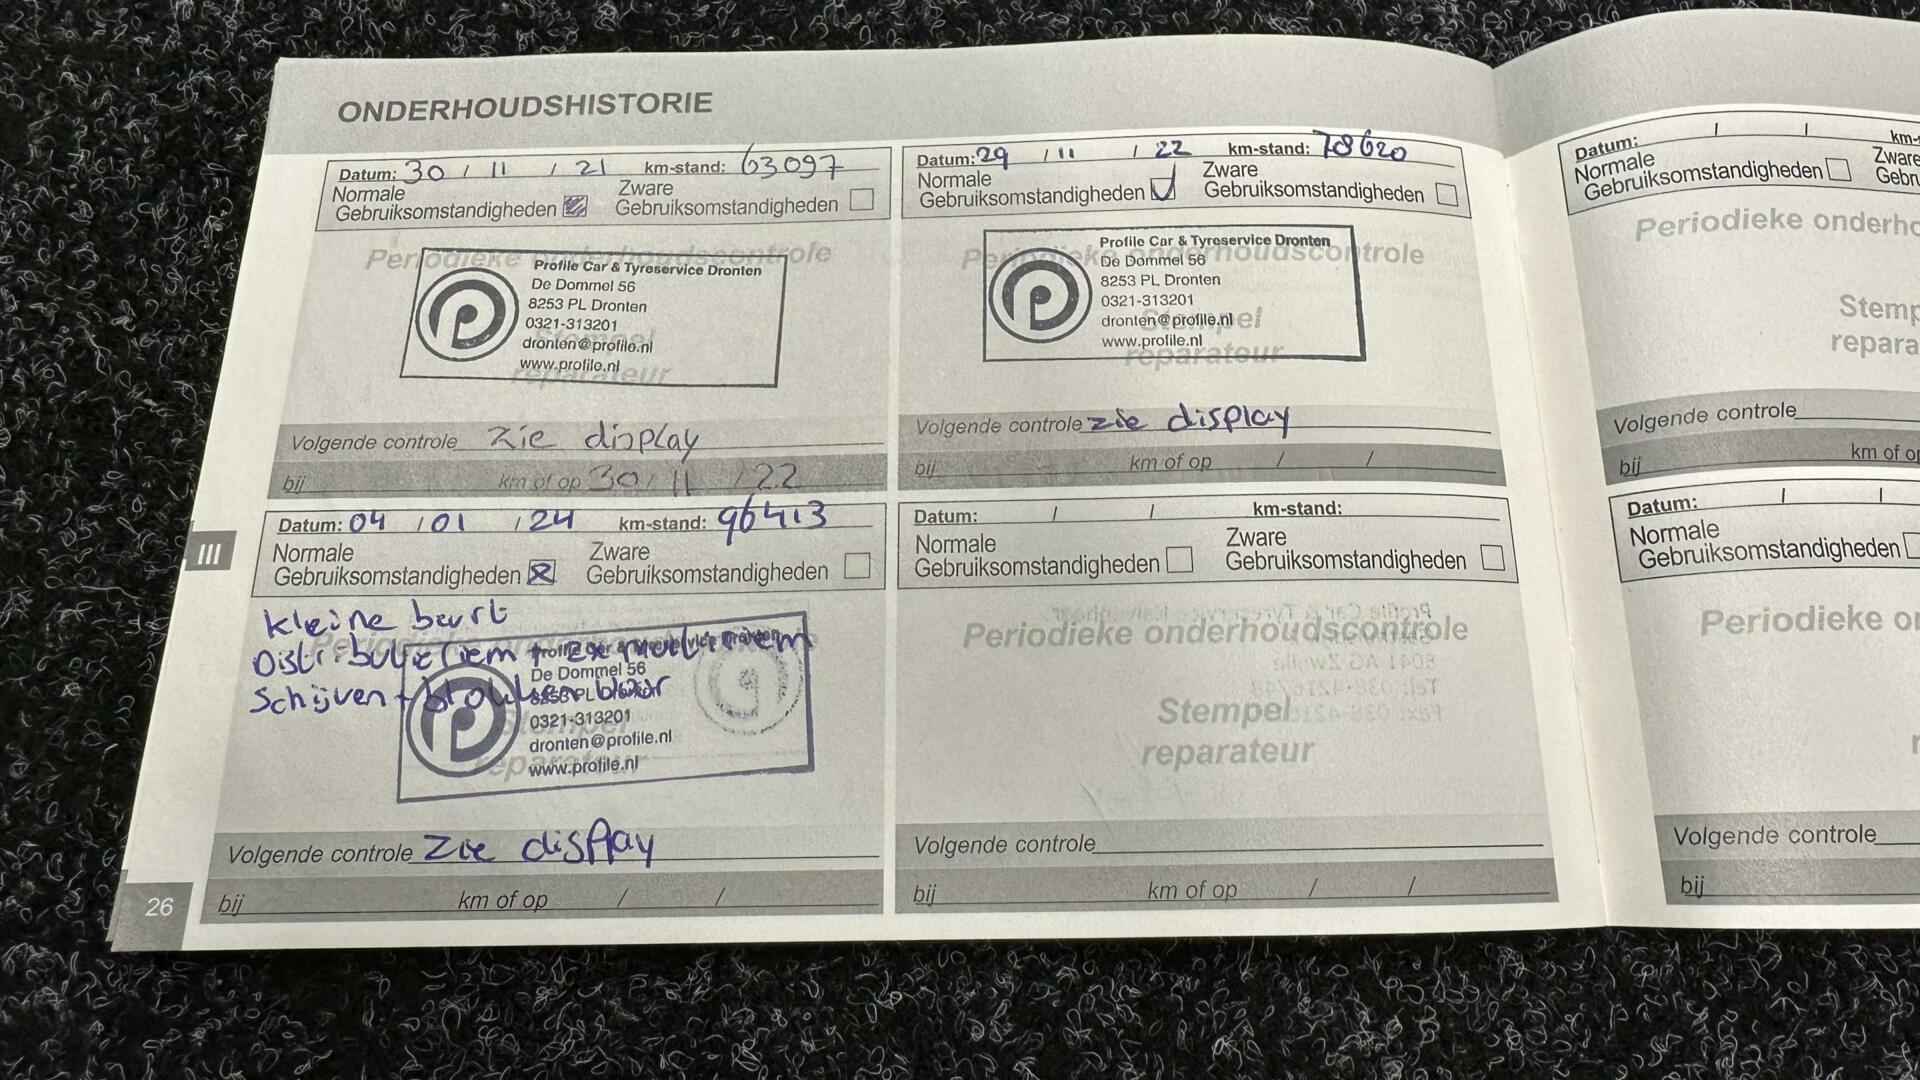 ONDERHOUDSHISTORIE
Datum: 30 / 11 / 21 km-stand: 63097
Normale
Gebruiksomstandigheden
Zware
Gebruiksomstandigheden
Periodieke onderhoudscontrole
Profile Car & Tyreservice Dronten
De Dommel 56
8253 PL Dronten
0321-313201
dronten@profile.nl
www.profile.nl
Stempel
reparateur
Volgende controle zie display
bij km of op 30 / 11 / 22
Datum: 29 / 11 / 22 km-stand: 78620
Normale
Gebruiksomstandigheden
Zware
Gebruiksomstandigheden
Periodieke onderhoudscontrole
Profile Car & Tyreservice Dronten
De Dommel 56
8253 PL Dronten
0321-313201
dronten@profile.nl
www.profile.nl
Stempel
reparateur
Volgende controle zie display
bij km of op / /
III
Datum: 04 / 01 / 24 km-stand: 96413
Normale
Gebruiksomstandigheden
Zware
Gebruiksomstandigheden
kleine beurt
Distributieriem +
Schijven + blokken
De Dommel 56
8253 PL
0321-313201
dronten@profile.nl
www.profile.nl
Stempel
reparateur
Volgende controle zie display
bij km of op / /
26
Datum: / / km-stand:
Normale
Gebruiksomstandigheden
Zware
Gebruiksomstandigheden
Periodieke onderhoudscontrole
Stempel
reparateur
Volgende controle
bij km of op / /
Datum: / / km-
Normale
Gebruiksomstandigheden
Zware
Gebru
Periodieke onderho
Stemp
repara
Volgende controle
bij km of op
Datum: / /
Normale
Gebruiksomstandigheden
Periodieke on
Volgende controle
bij